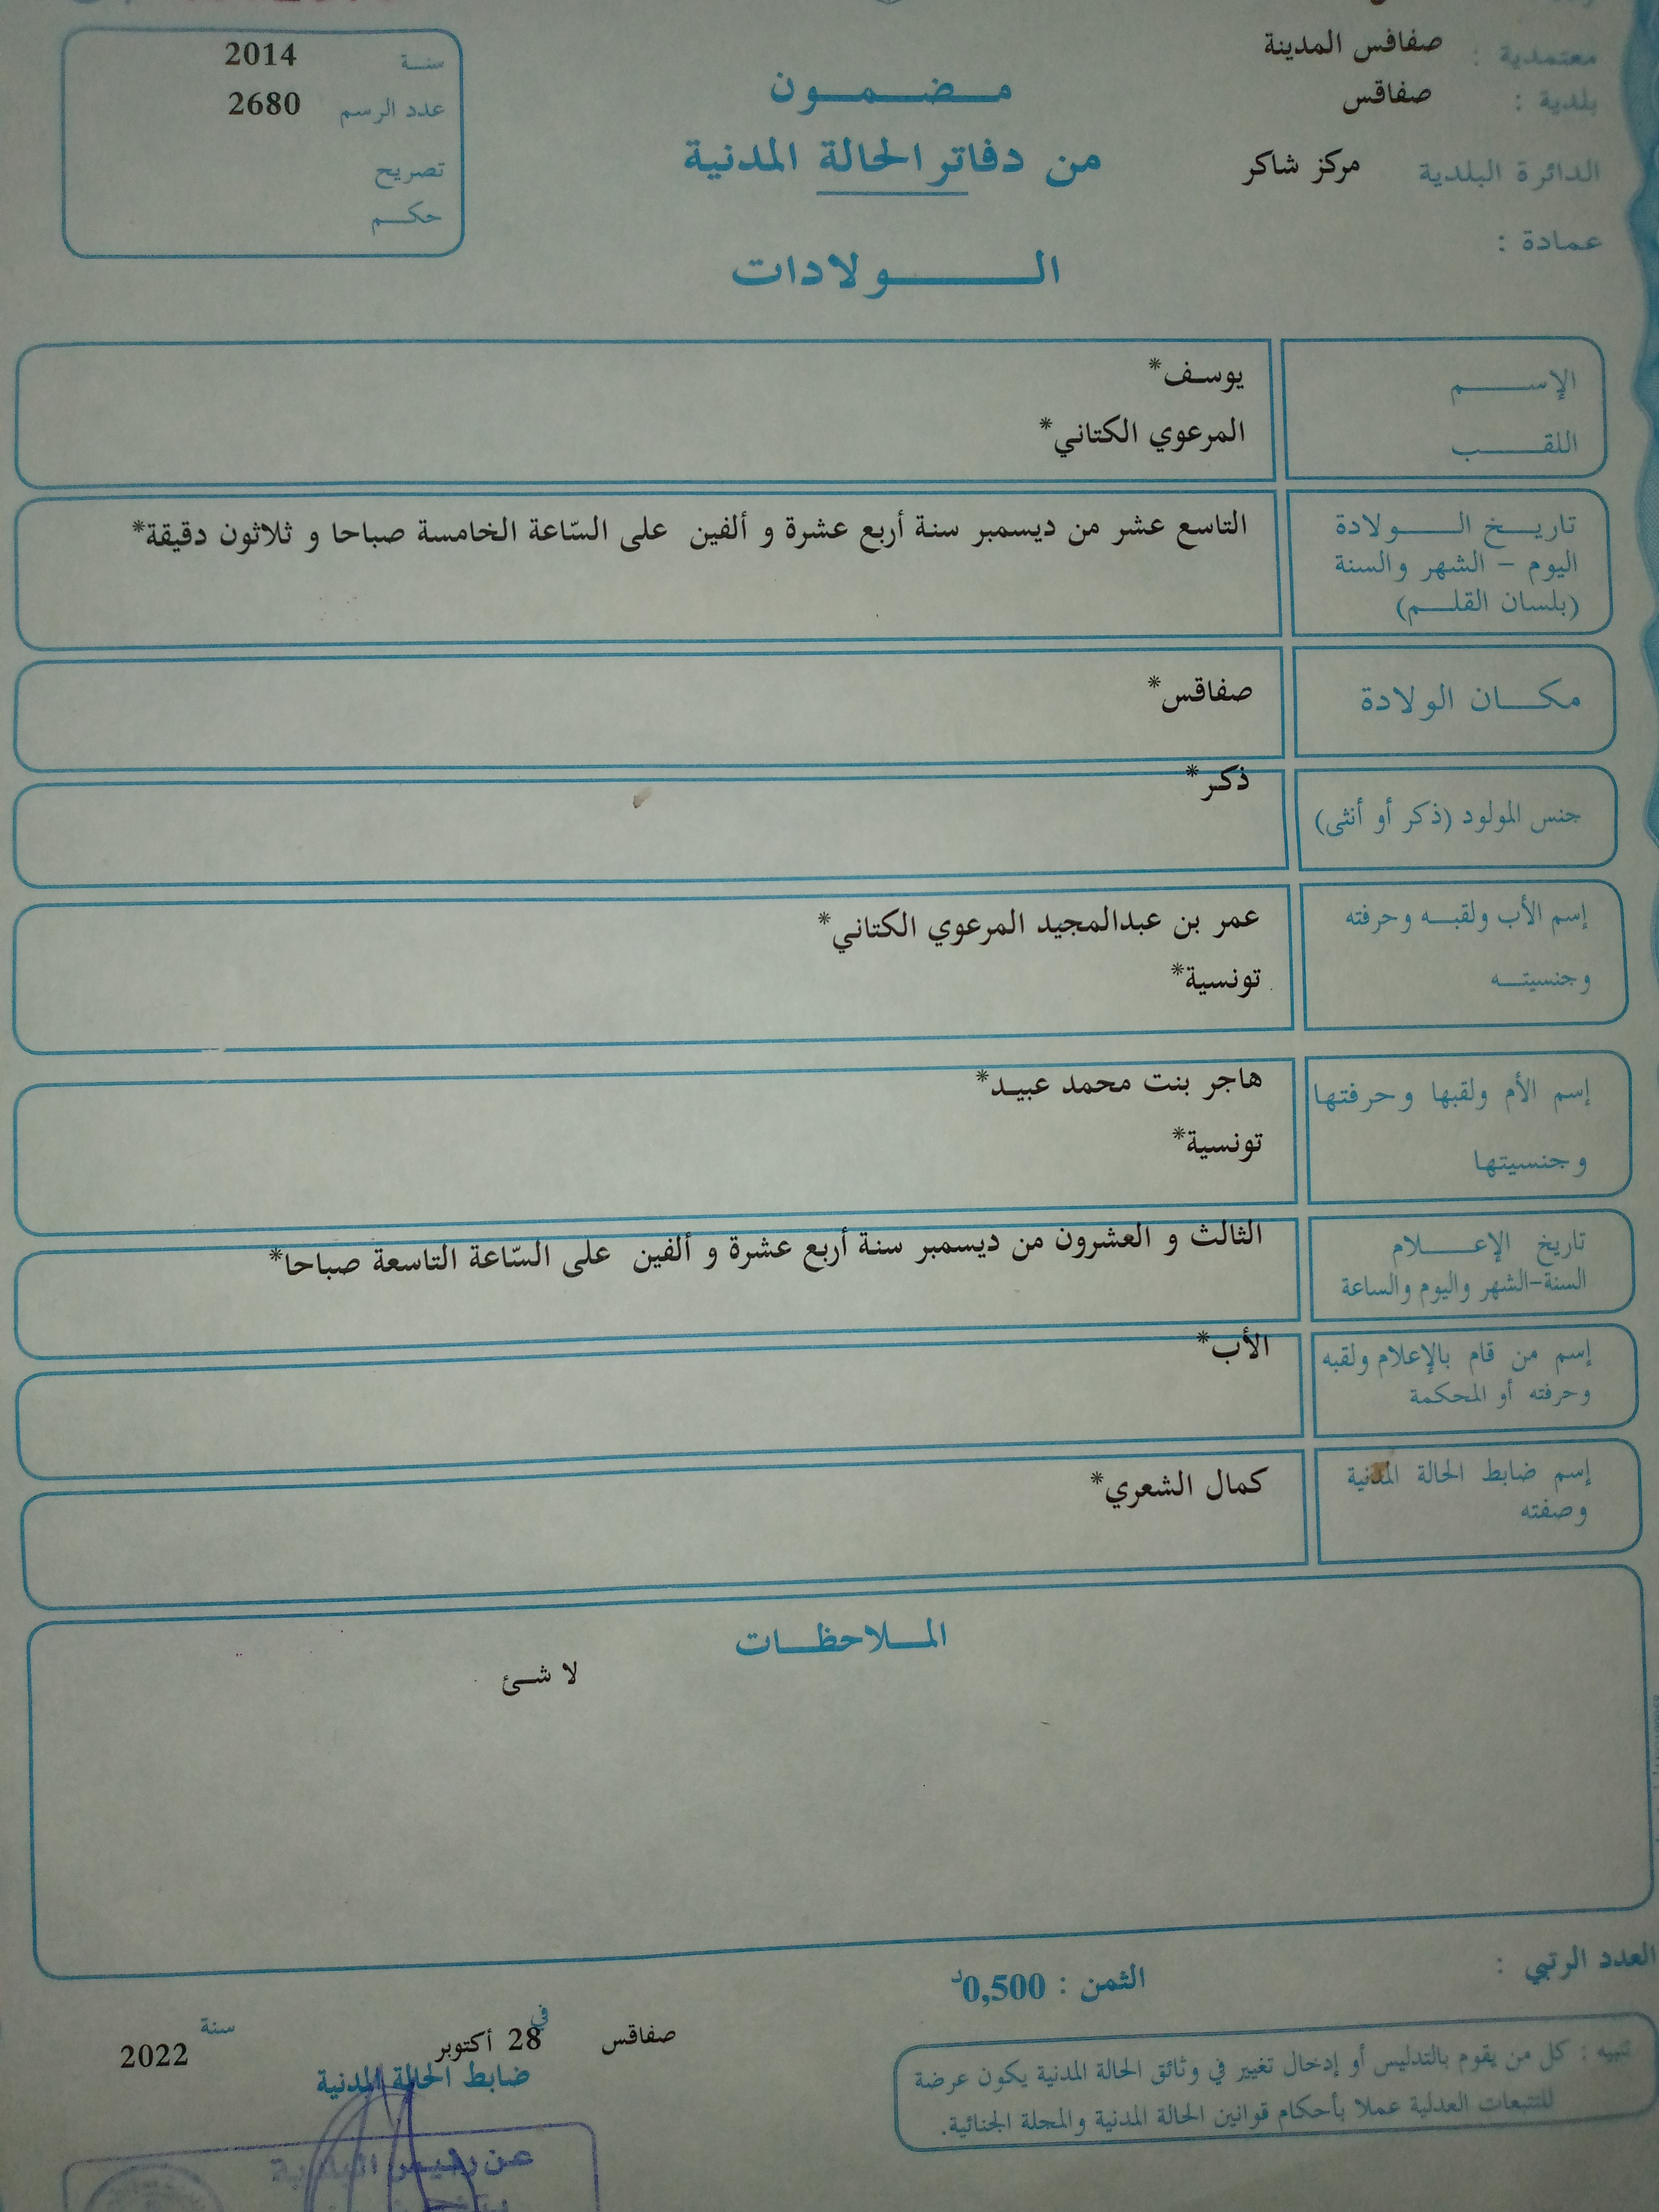 معتمدية : صفاقس المدينة
بلدية : صفاقس
الدائرة البلدية مركز شاكر
عمادة :
مضمون
من دفاتر الحالة المدنية
الولادات
سنة 2014
عدد الرسم 2680
تصريح
حكم
الإسم يوسف*
اللقب المرعوي الكتاني*
تاريخ الولادة التاسع عشر من ديسمبر سنة أربع عشرة و ألفين على السّاعة الخامسة صباحا و ثلاثون دقيقة*
اليوم - الشهر والسنة
(بلسان القلم)
مكان الولادة صفاقس*
جنس المولود (ذكر أو أنثى) ذكر*
إسم الأب ولقبه وحرفته عمر بن عبدالمجيد المرعوي الكتاني*
وجنسيته تونسية*
إسم الأم ولقبها وحرفتها هاجر بنت محمد عبيد*
وجنسيتها تونسية*
تاريخ الإعلام الثالث و العشرون من ديسمبر سنة أربع عشرة و ألفين على السّاعة التاسعة صباحا*
السنة-الشهر واليوم والساعة
إسم من قام بالإعلام ولقبه الأب*
وحرفته أو المحكمة
إسم ضابط الحالة المدنية كمال الشعري*
وصفته
الملاحظات
لا شئ
العدد الرتبي :
الثمن : 0,500د
تنبيه : كل من يقوم بالتدليس أو إدخال تغيير في وثائق الحالة المدنية يكون عرضة
للتتبعات العدلية عملا بأحكام قوانين الحالة المدنية والمجلة الجنائية.
صفاقس في 28 أكتوبر سنة 2022
ضابط الحالة المدنية
عن رئيس البلدية